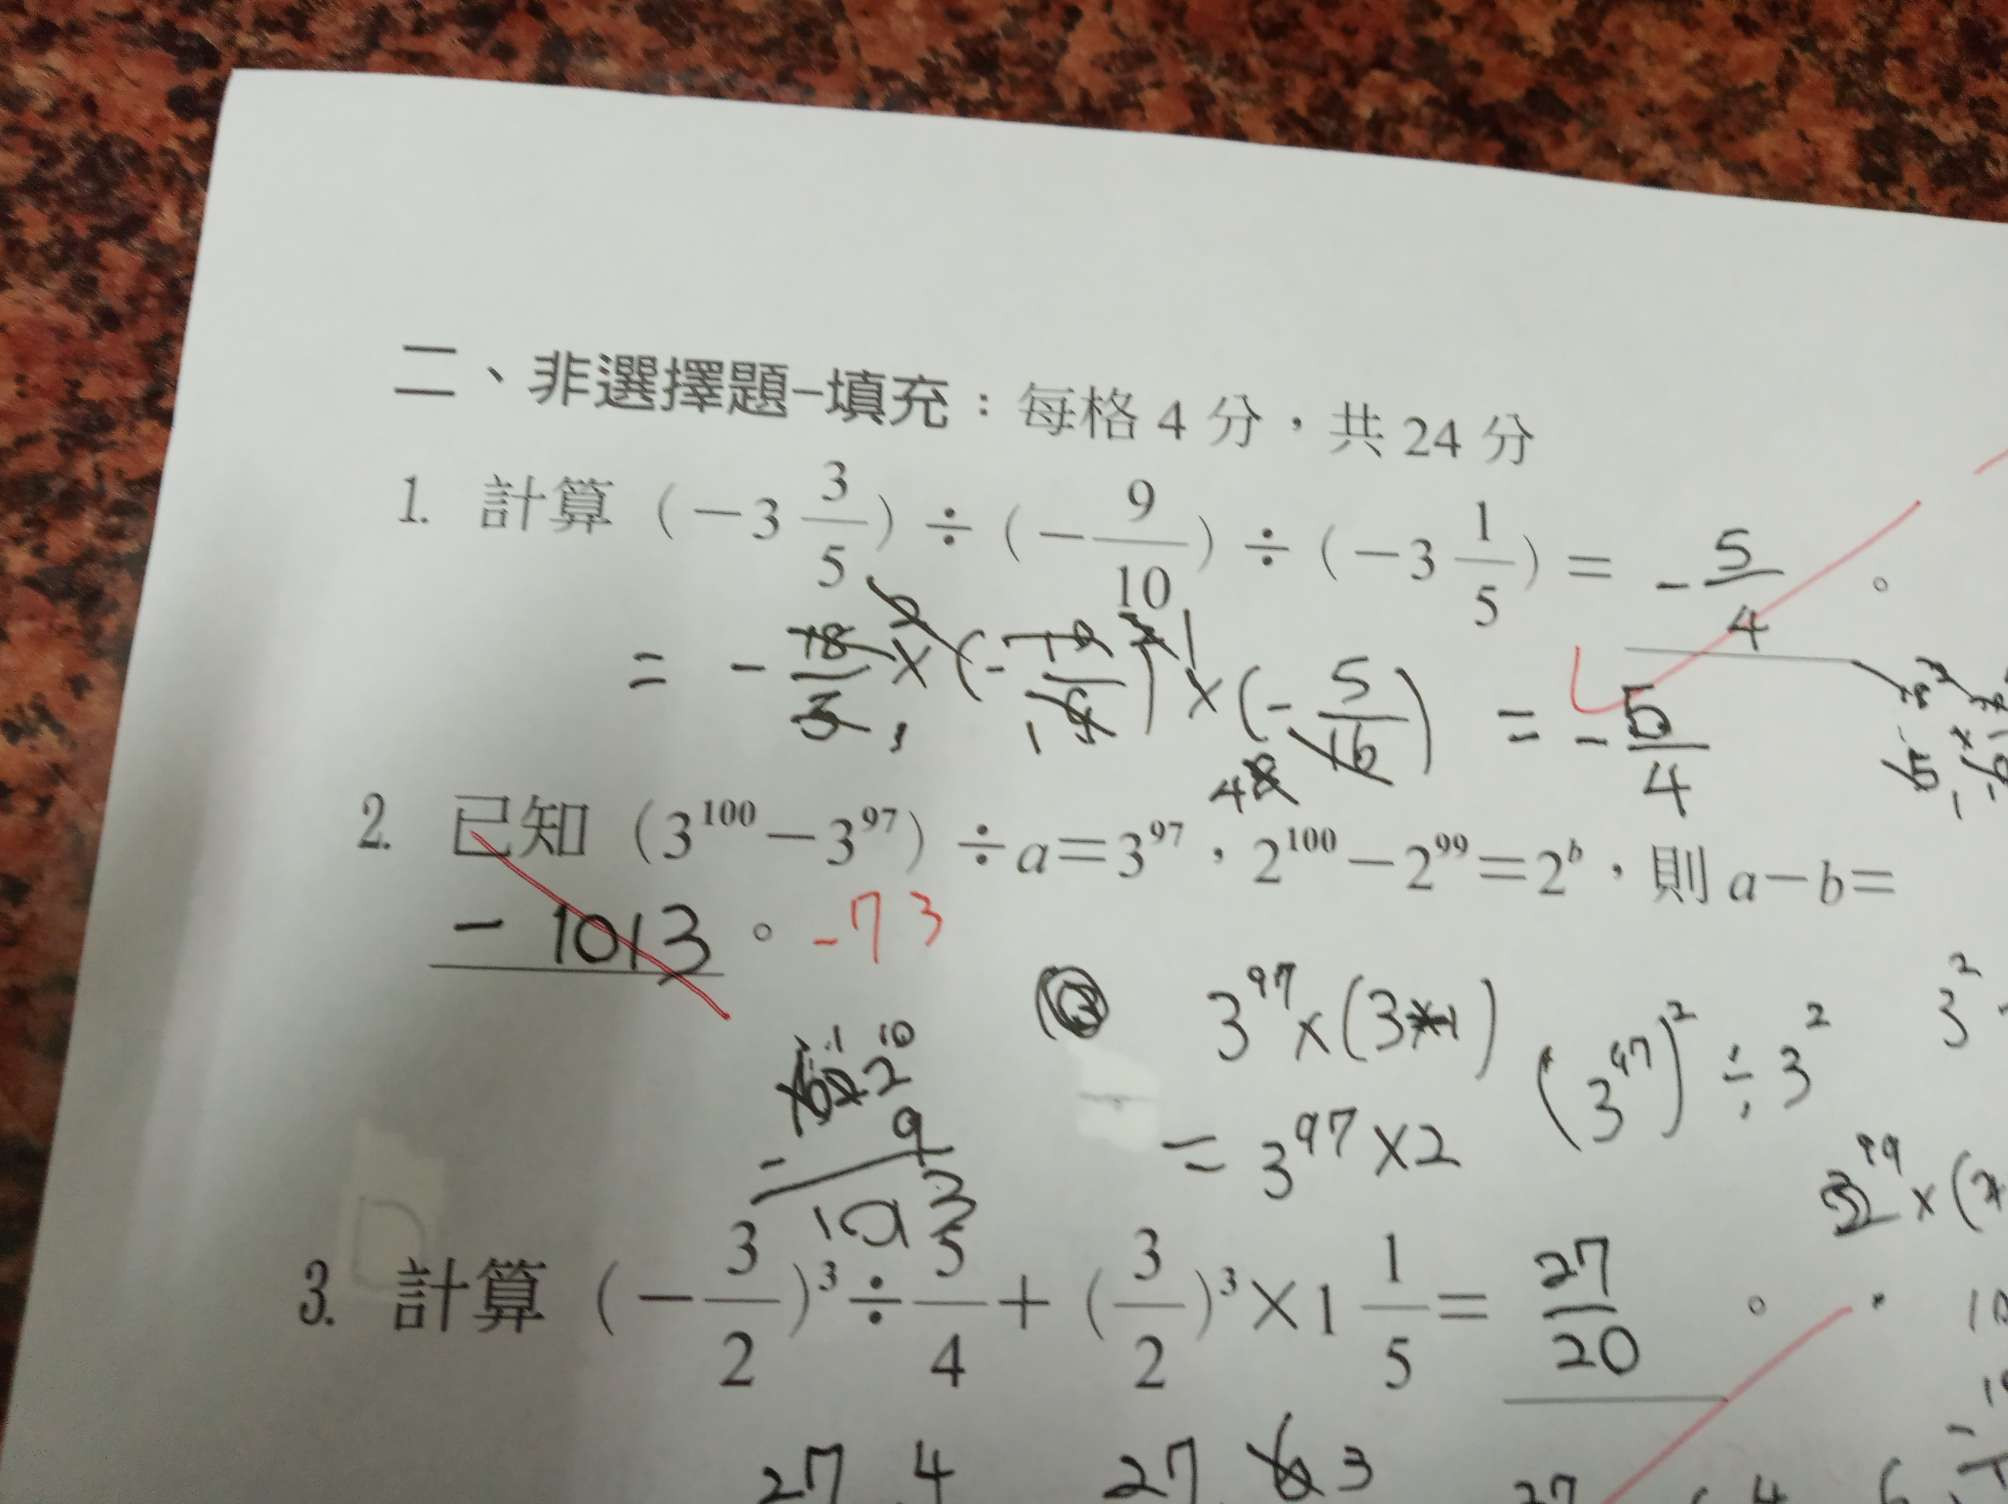 二、非選擇題-填充：每格 4 分，共 24 分
1. 計算 (-3 3/5) ÷ (- 9/10) ÷ (-3 1/5) = - 5/4 。
= - 18/5 × (- 10/9) × (- 5/16) = - 5/4
2. 已知 (3^100 - 3^97) ÷ a = 3^97，2^100 - 2^99 = 2^b，則 a - b =
- 1013 。 -73
3^97 × (3 1)
(3^97)^2 ÷ 3^2
3^2
= 3^97 × 2
- 9
3. 計算 (- 3/2)^3 ÷ 5/4 + (3/2)^3 × 1 1/5 = 27/20 。
27 4 27 6 3 27